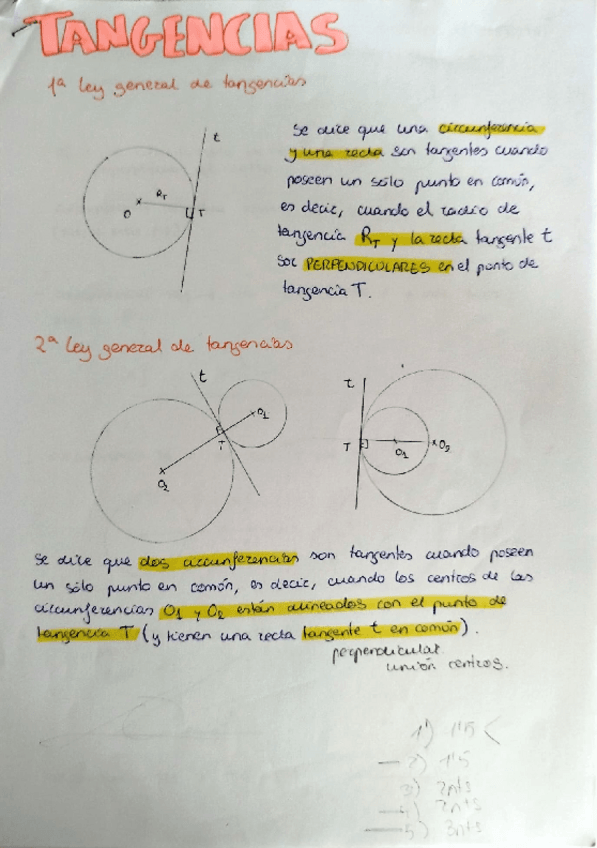 TANGENCIAS
1ª Ley general de tangencias
t
RT
O
T
Se dice que una circunferencia
y una recta son tangentes cuando
poseen un sólo punto en común,
es decir, cuando el radio de
tangencia RT y la recta tangente t
son PERPENDICULARES en el punto de
tangencia T.
2ª Ley general de tangencias
t
O1
T
O2
t
T
O1
O2
Se dice que dos circunferencias son tangentes cuando poseen
un sólo punto en común, es decir, cuando los centros de las
circunferencias O1 y O2 están alineados con el punto de
tangencia T (y tienen una recta tangente t en común).
perpendicular
unión centros.
1) 1'5
2) 1'5
3) 2nts
4) 2nts
5) 3nts